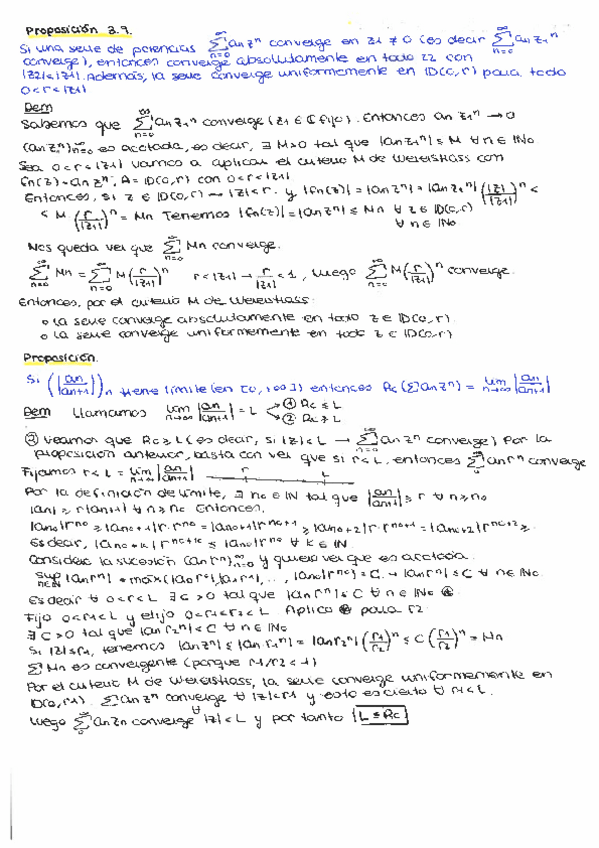 Proposición 3.9.
Si una serie de potencias $\sum_{n=0}^{\infty} a_n z^n$ converge en $z_1 \neq 0$ (es decir $\sum_{n=0}^{\infty} a_n z_1^n$
converge), entonces converge absolutamente en todo $z_2$ con
$|z_2| < |z_1|$. Además, la serie converge uniformemente en $\mathbb{D}(0,r)$ para todo
$0 < r < |z_1|$
Dem
Sabemos que $\sum_{n=0}^{\infty} a_n z_1^n$ converge ($z_1 \in \mathbb{C}$ fijo). Entonces $a_n z_1^n \to 0$
$(a_n z_1^n)_{n=0}^{\infty}$ es acotada, es decir, $\exists M > 0$ tal que $|a_n z_1^n| \leq M \; \forall n \in \mathbb{N}_0$
Sea $0 < r < |z_1|$ vamos a aplicar el criterio M de Weierstrass con
$f_n(z) = a_n z^n$, $A = \mathbb{D}(0,r)$ con $0 < r < |z_1|$
Entonces, si $z \in \mathbb{D}(0,r) \to |z| < r$. y $|f_n(z)| = |a_n z^n| = |a_n z_1^n| \left(\frac{|z|}{|z_1|}\right)^n <$
$< M \left(\frac{r}{|z_1|}\right)^n = M_n$ Tenemos $|f_n(z)| = |a_n z^n| \leq M_n \; \forall z \in \mathbb{D}(0,r)$
$\forall n \in \mathbb{N}_0$
Nos queda ver que $\sum_{n=0}^{\infty} M_n$ converge.
$\sum_{n=0}^{\infty} M_n = \sum_{n=0}^{\infty} M \left(\frac{r}{|z_1|}\right)^n$ $r < |z_1| \to \frac{r}{|z_1|} < 1$, luego $\sum_{n=0}^{\infty} M \left(\frac{r}{|z_1|}\right)^n$ converge.
Entonces, por el criterio M de Weierstrass:
o La serie converge absolutamente en todo $z \in \mathbb{D}(0,r)$
o La serie converge uniformemente en todo $z \in \mathbb{D}(0,r)$
Proposición.
Si $\left(\left|\frac{a_n}{a_{n+1}}\right|\right)_n$ tiene límite (en $[0,+\infty]$) entonces $R_c(\sum a_n z^n) = \lim_{n\to\infty} \left|\frac{a_n}{a_{n+1}}\right|$
Dem Llamamos $\lim_{n\to\infty} \left|\frac{a_n}{a_{n+1}}\right| = L$ ① $R_c \leq L$
② $R_c \geq L$
② Veamos que $R_c \geq L$ (es decir, si $|z| < L \to \sum_{n=0}^{\infty} a_n z^n$ converge) Por la
proposición anterior, basta con ver que si $r < L$, entonces $\sum_{n=0}^{\infty} a_n r^n$ converge
Fijamos $r < L = \lim_{n\to\infty} \left|\frac{a_n}{a_{n+1}}\right|$ r L
Por la definición de límite, $\exists n_0 \in \mathbb{N}$ tal que $\left|\frac{a_n}{a_{n+1}}\right| \geq r \; \forall n \geq n_0$
$|a_n| \geq r |a_{n+1}| \; \forall n \geq n_0$ Entonces,
$|a_{n_0}| r^{n_0} \geq |a_{n_0+1}| r \cdot r^{n_0} = |a_{n_0+1}| r^{n_0+1} \geq |a_{n_0+2}| r \cdot r^{n_0+1} = |a_{n_0+2}| r^{n_0+2} \geq$
Es decir, $|a_{n_0+k}| r^{n_0+k} \leq |a_{n_0}| r^{n_0} \; \forall k \in \mathbb{N}$
Considero la sucesión $(a_n r^n)_{n=0}^{\infty}$ y quiero ver que es acotada.
$\sup_{n \in \mathbb{N}} |a_n r^n| = \max(|a_0 r^0|, |a_1 r^1|, ..., |a_{n_0}| r^{n_0}) = C \to |a_n r^n| \leq C \; \forall n \in \mathbb{N}_0$
Es decir $\forall \; 0 < r < L \; \exists C > 0$ tal que $|a_n r^n| \leq C \; \forall n \in \mathbb{N}_0$ ⊛
Fijo $0 < r_1 < L$ y elijo $0 < r_1 < r_2 < L$. Aplico ⊛ para $r_2$
$\exists C > 0$ tal que $|a_n r_2^n| < C \; \forall n \in \mathbb{N}_0$
Si $|z| \leq r_1$, tenemos $|a_n z^n| \leq |a_n r_1^n| = |a_n r_2^n| \left(\frac{r_1}{r_2}\right)^n \leq C \left(\frac{r_1}{r_2}\right)^n = M_n$
$\sum M_n$ es convergente (porque $r_1/r_2 < 1$)
Por el criterio M de Weierstrass, la serie converge uniformemente en
$\mathbb{D}(0,r_1)$. $\sum a_n z^n$ converge $\forall |z| < r_1$ y esto es cierto $\forall r_1 < L$.
Luego $\sum_{n=0}^{\infty} a_n z_n$ converge $\forall |z| < L$ y por tanto $L \leq R_c$